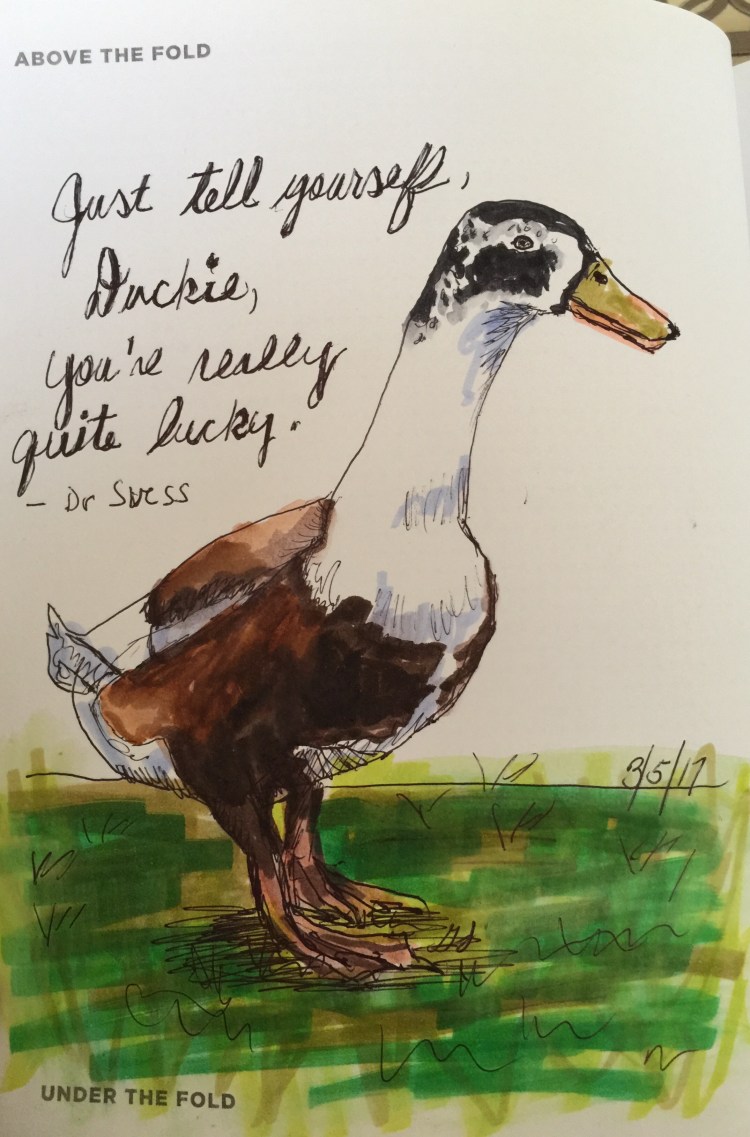 ABOVE THE FOLD
Just tell yourself,
Duckie,
you're really
quite lucky.
- Dr Suess
3/5/17
UNDER THE FOLD